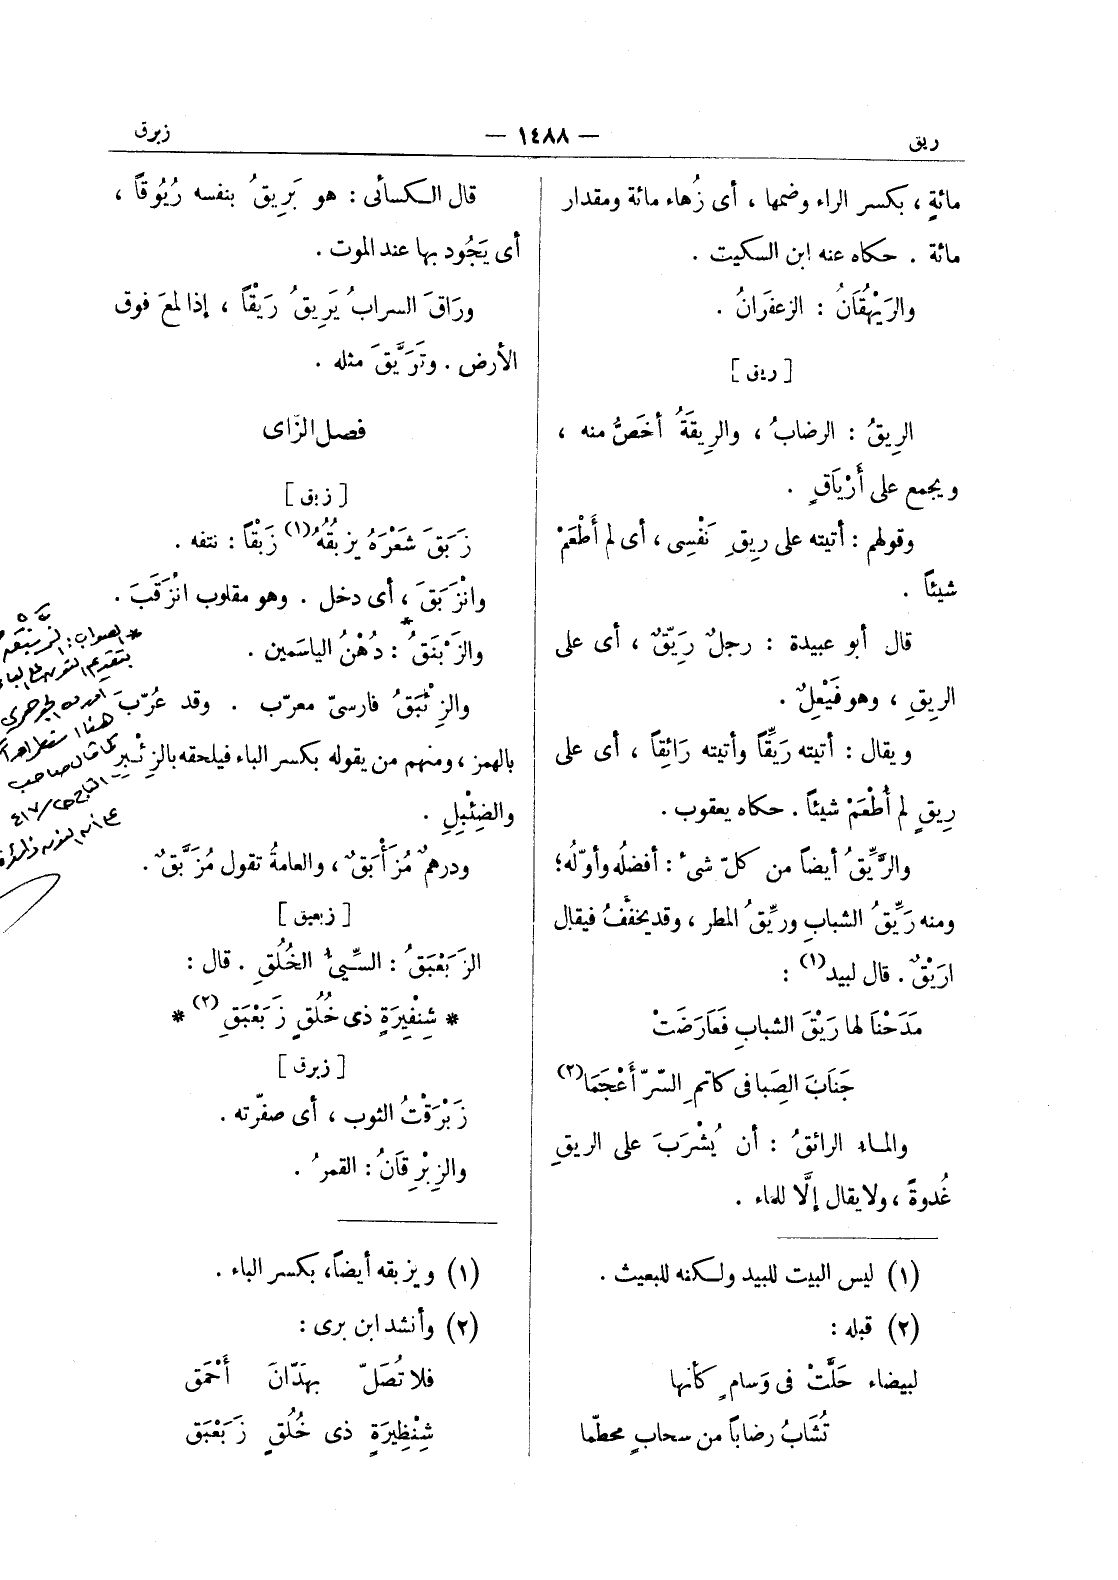 ريق
— ١٤٨٨ —
زبرق
مائةٍ ، بكسر الراء وضمها ، أى زُهاء مائة ومقدار
مائة . حكاه عنه ابن السكيت .
والرَيْهُقَانُ : الزعفرانُ .
[ ريق ]
الرِيقُ : الرضابُ ، والرِيقَةُ أخَصُّ منه ،
ويجمع على أَرْيَاقٍ .
وقولهم : أتيته على رِيقِ نَفْسِى ، أى لم أَطْعَمْ
شيئاً .
قال أبو عبيدة : رجلٌ رَيِّقٌ ، أى على
الرِيقِ ، وهو فَيْعِلٌ .
ويقال : أتيته رَيِّقاً وأتيته رَائِقاً ، أى على
رِيقٍ لم أُطْعَمْ شيئاً . حكاه يعقوب .
والرَّيِّقُ أيضاً من كلّ شىءٍ : أفضلُه وأوّلُه ؛
ومنه رَيِّقُ الشبابِ وريِّقُ المطر ، وقد يخفَّفُ فيقال
ارَيْقٌ . قال لبيد(١) :
مَدَحْنَا لها رَيْقَ الشبابِ فَعَارَضَتْ
جَنَابَ الصِبا فى كاتم السّرّ أَعْجَمَا(٢)
والماء الرائقُ : أن يُشْرَبَ على الريقِ
غُدوةً ، ولا يقال إلَّا للماء .
(١) ليس البيت للبيد ولكنه للبعيث .
(٢) قبله :
لبيضاء حَلَّتْ فى وَسامٍ كأنها
تُشَابُ رضاباً من سحابٍ محطّما
قال الكسائى : هو بَرِيقُ بنفسه رُيُوقاً ،
أى يَجُود بها عند الموت .
ورَاقَ السرابُ يَرِيقُ رَيْقاً ، إذا لمعَ فوق
الأرض . وتَرَيَّقَ مثله .
فصل الزّاى
[ زبق ]
زَبَقَ شَعْرَهُ يزبُقُهُ(١) زَبْقاً : نتفه .
وانْزَبَقَ ، أى دخل . وهو مقلوب انْزَقَبَ .
والزَبْنَقُ* : دُهْنُ الياسَمين .
والزِئْبَقُ فارسىّ معرّب . وقد عُرّبَ
بالهمز ، ومنهم من يقوله بكسر الباء فيلحقه بالزِئْبِرِ
والضِئْبِلِ .
ودرهمٌ مُزَأْبَقٌ ، والعامةُ تقول مُزَبَّقٌ .
[ زبعبق ]
الزَبَعْبَقُ : السَّيِّئُ الخُلُقِ . قال :
* شِنْفِيرَةٍ ذى خُلُقٍ زَبَعْبَقِ(٢) *
[ زبرق ]
زَبْرَقْتُ الثوب ، أى صفّرته .
والزِبْرِقَانُ : القمرُ .
(١) ويزبقه أيضاً، بكسر الباء .
(٢) وأنشد ابن برى :
فلا تُصَلّ بهَدّانَ أَحْمَق
شِنْظِيرَةٍ ذى خُلُقٍ زَبَعْبَق
* الصواب :
بتقديم النون على الباء
الجوهرى
هذا
كما قال صاحب
التاج ٤١٧/